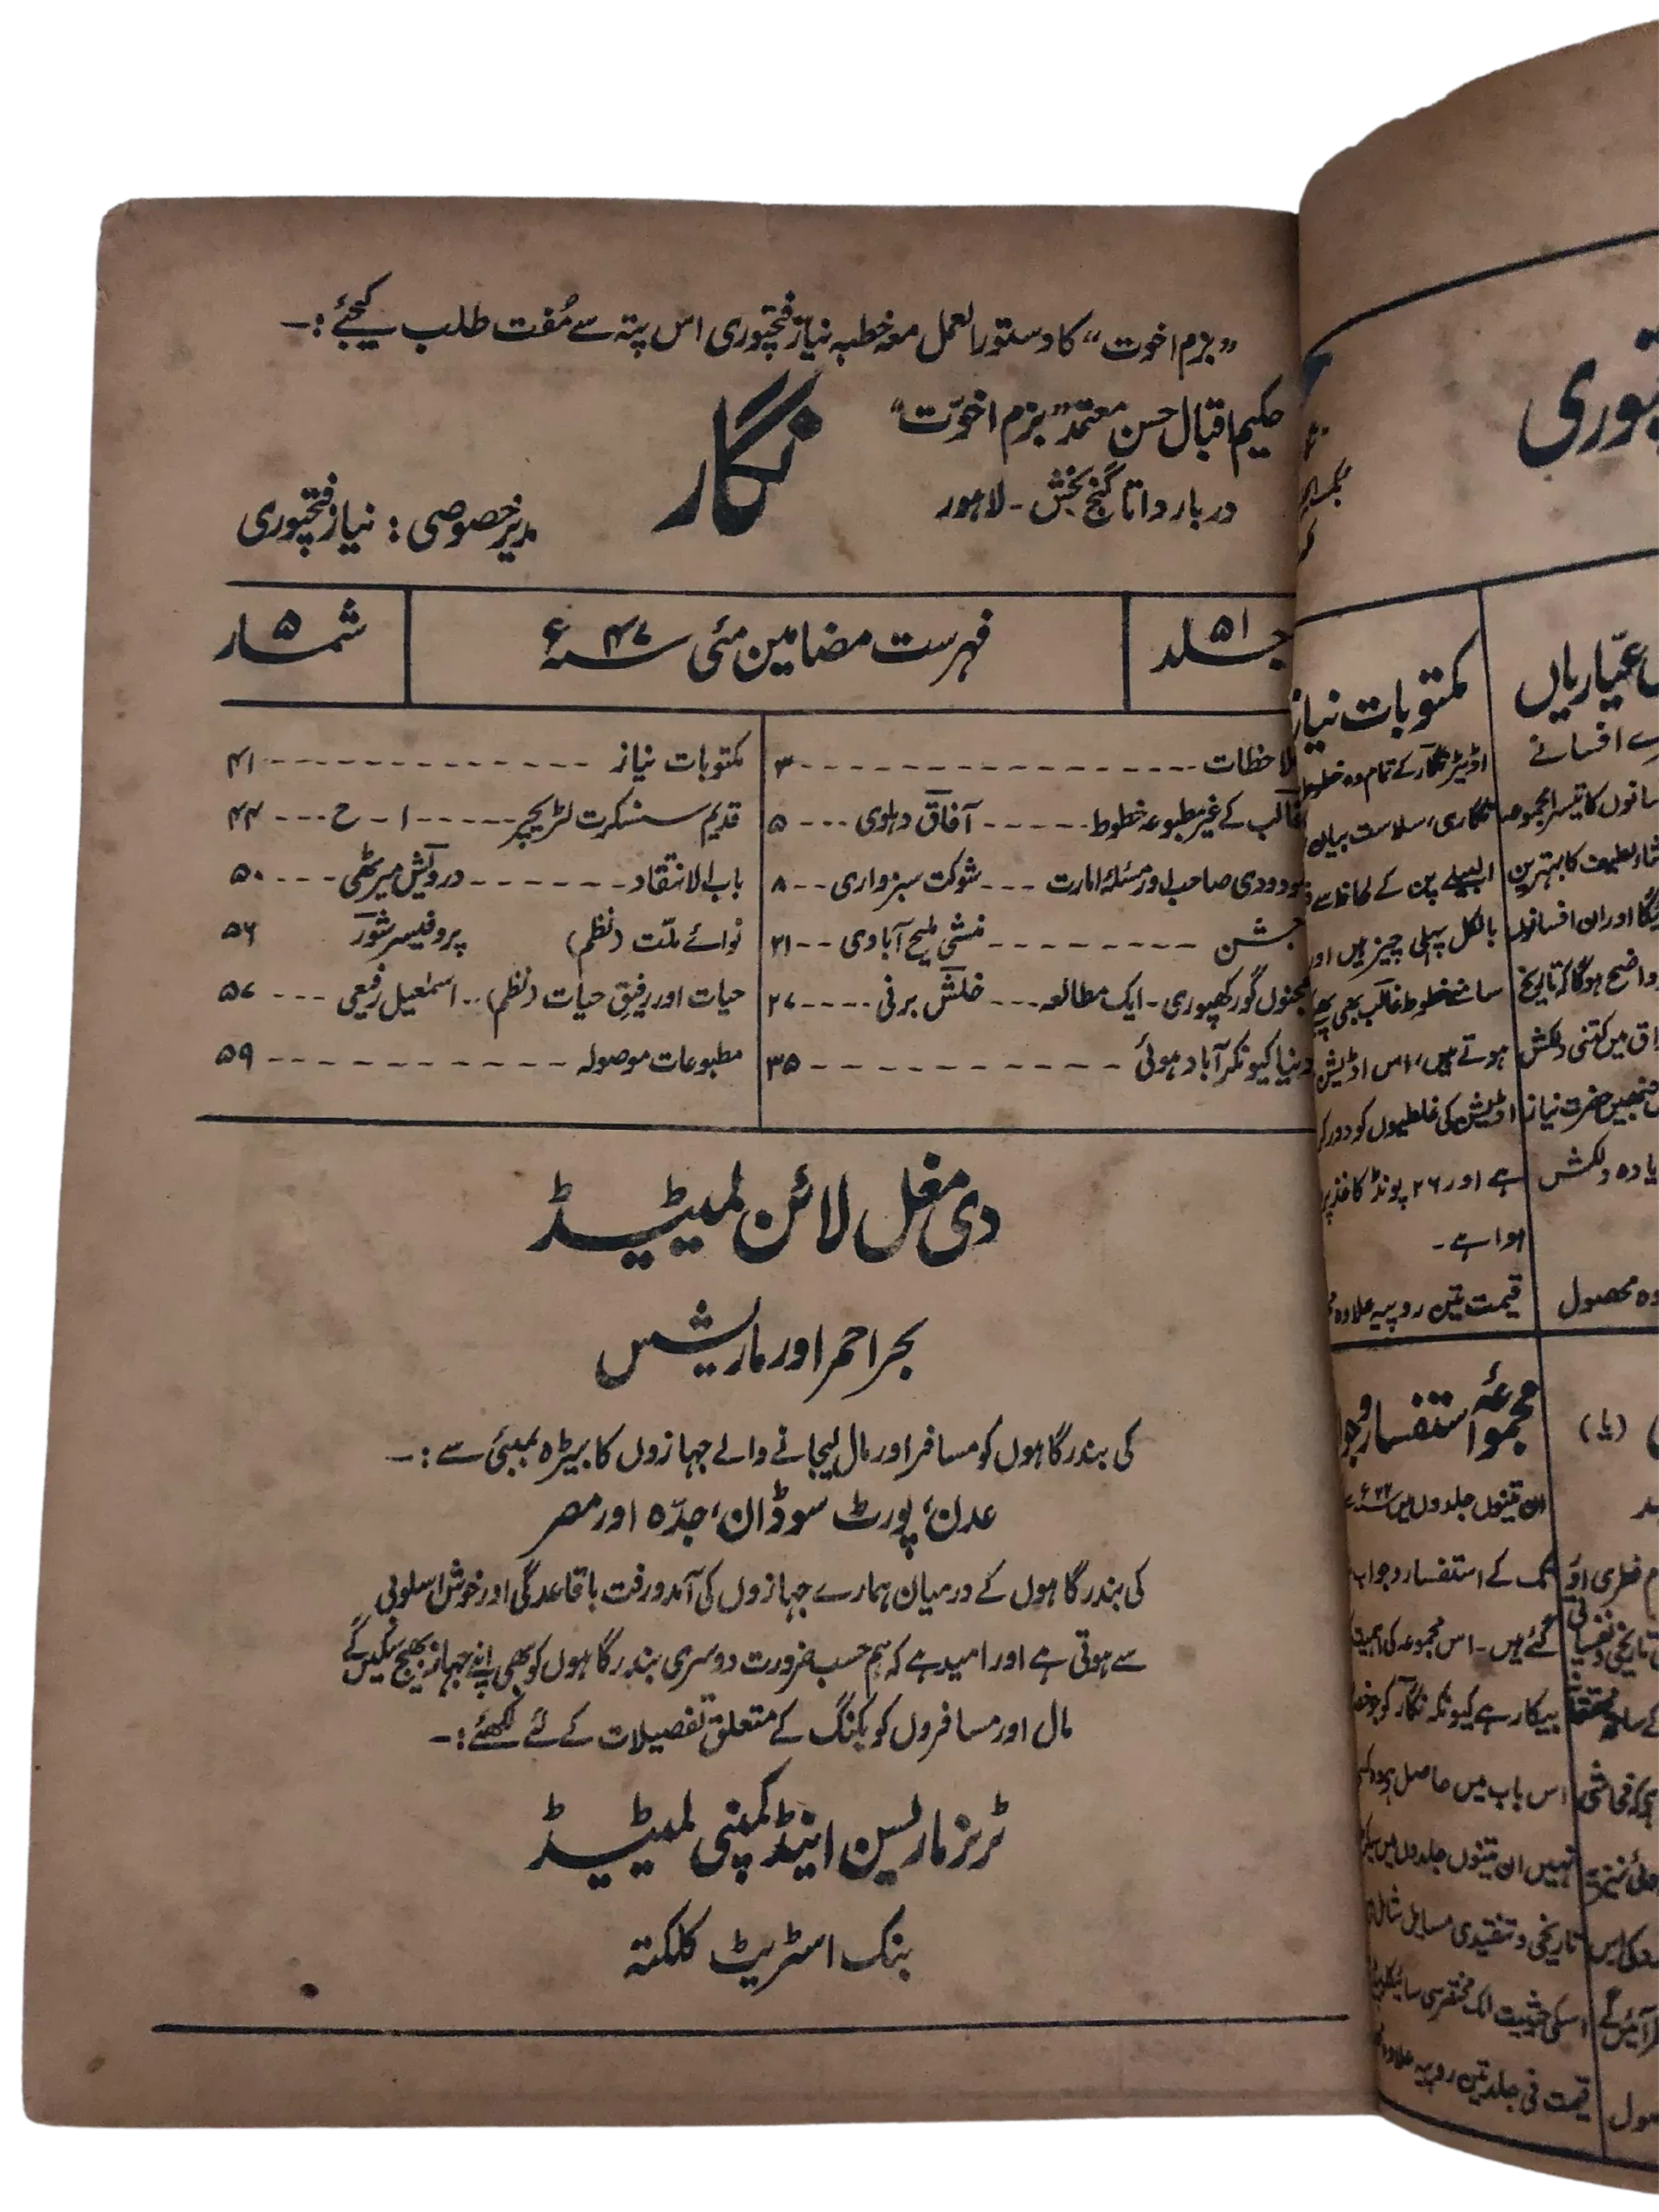 ”بزم اخوت“ کا دستورالعمل معہ خطبہ نیاز فتحپوری اس پتہ سے مُفت طلب کیجئے :۔
حکیم اقبال حسن معتمد ”بزم اخوّت“
دربار داتا گنج بخش - لاہور
نگار
مدیر خصوصی : نیاز فتحپوری
جلد ۵۱
فہرست مضامین مئی سنہ ۴۷ء
شمار ۵
ملاحظات ---- ۳
غالب کے غیر مطبوعہ خطوط ---- آفاق دہلوی --- ۵
مودودی صاحب اور مسئلۂ امارت --- شوکت سبزواری -- ۸
جشن ---- منشی ملیح آبادی -- ۲۱
مجنوں گورکھپوری - ایک مطالعہ --- خلش برنی ---- ۲۷
دنیا کیونکر آباد ہوئی ---- ۳۵
مکتوبات نیاز ---- ۴۱
قدیم سنسکرت لٹریچر ---- ا - ح --- ۴۴
باب الانتقاد ---- درویش میرٹھی ---- ۵۰
نوائے ملّت (نظم) پروفیسر شور ۵۶
حیات اور رفیقِ حیات (نظم) -- اسمٰعیل رفیعی --- ۵۷
مطبوعات موصولہ ---- ۵۹
دی مغل لائن لمیٹیڈ
بحر احمر اور ماریشس
کی بندرگاہوں کو مسافر اور مال لیجانے والے جہازوں کا بیڑہ بمبئی سے :۔
عدن، پورٹ سوڈان، جدّہ اور مصر
کی بندرگاہوں کے درمیان ہمارے جہازوں کی آمدورفت باقاعدگی اور خوش اسلوبی
سے ہوتی ہے اور امید ہے کہ ہم حسب ضرورت دوسری بندرگاہوں کو بھی اپنے جہاز بھیج سکیں گے
مال اور مسافروں کو بکنگ کے متعلق تفصیلات کے لئے لکھئے :۔
ٹرنر ماریسن اینڈ کمپنی لمیٹیڈ
بنک اسٹریٹ کلکتہ
مکتوبات نیاز
اڈیٹر نگار کے تمام وہ خطوط
نگاری، سلاست بیان
البیلے پن کے لحاظ سے
بالکل پہلی چیز ہیں اور
سامنے خطوط غالب بھی
ہوتے ہیں، اس اڈیشن
اڈیشن کی غلطیوں کو دور کر
ہے اور ۲۶ پونڈ کاغذ پر
ہوا ہے۔
قیمت تین روپیہ علاوہ
مجموعۂ استفسار و
ان تینوں جلدوں میں
تک کے استفسار و جواب
گئے ہیں۔ اس مجموعہ کی اہمیت
بیکار ہے کیونکہ نگار کو جو
اس باب میں حاصل ہے وہ کسی
نہیں ان تینوں جلدوں میں
تاریخی و تنقیدی مسایل شامل
اسکی حیثیت ایک مختصر سی
قیمت فی جلد تین روپیہ علاوہ
عیّاریاں
افسانے
(یا)